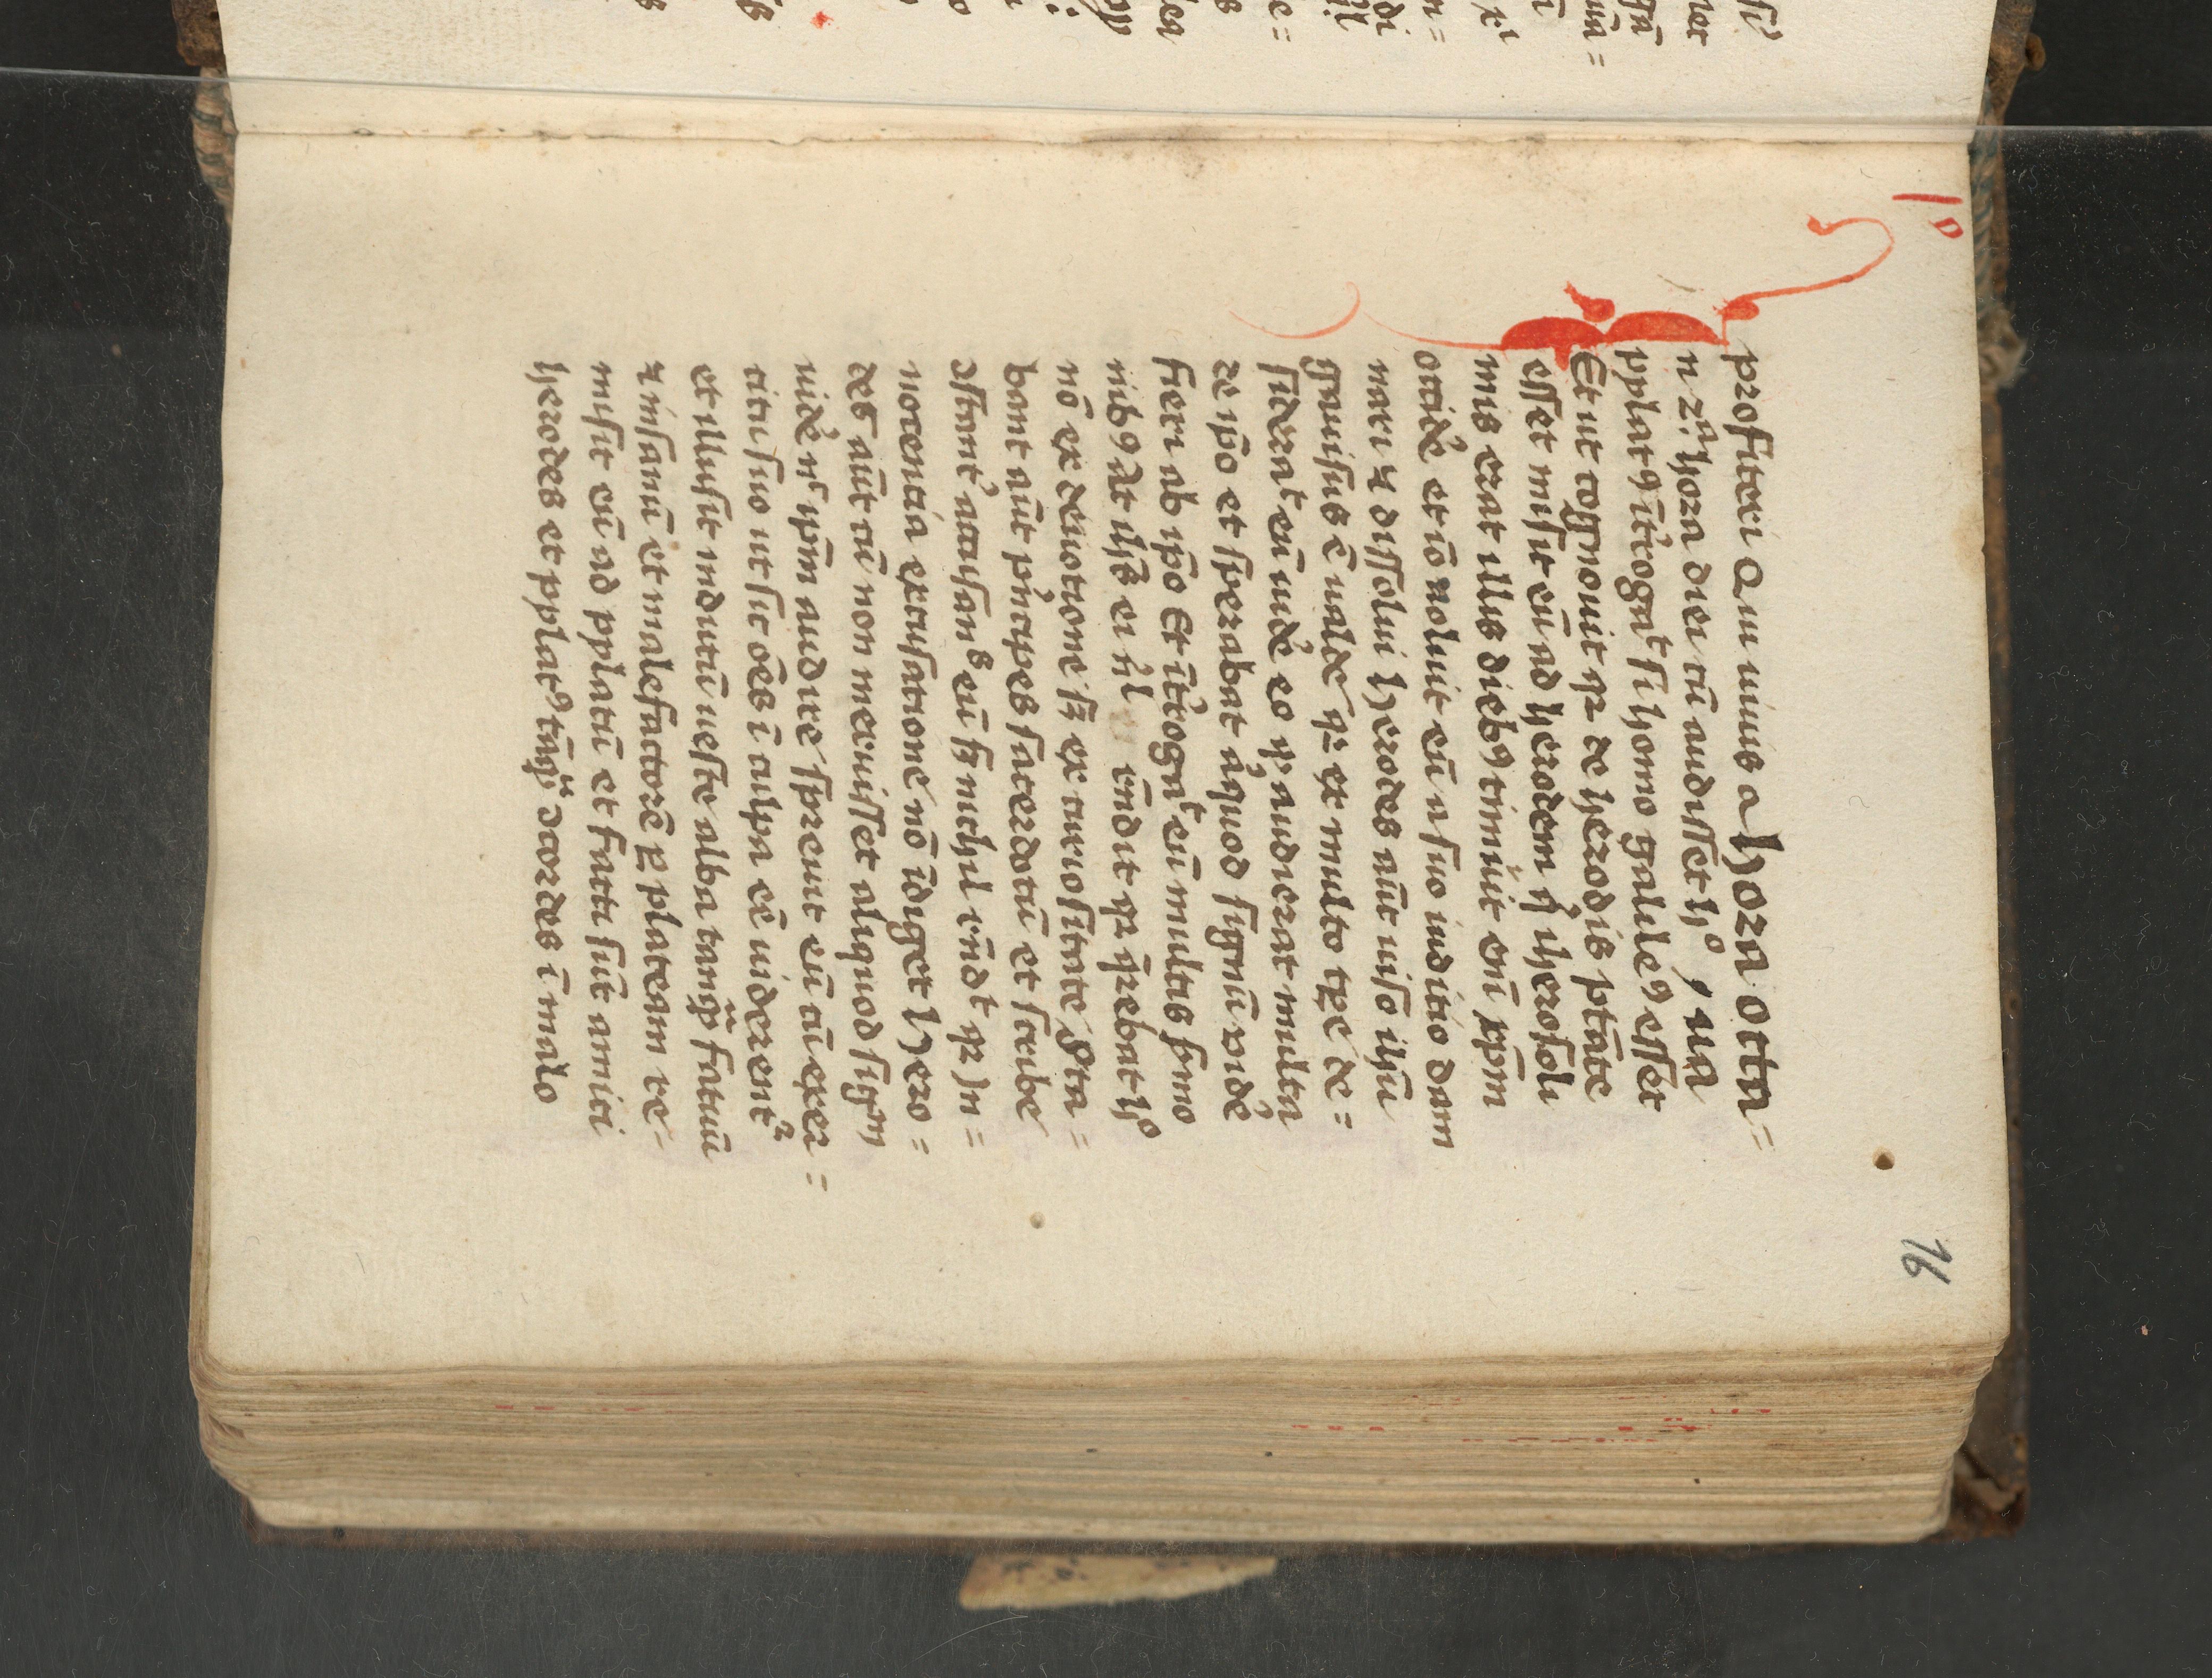 1o
profiteri Qui uiuis a hora octa=
ua
a 2ª hora diei cū audisset hͦ,
pplatꝰ ītrogaᵗ si homo galileꝰ esset
Et ut cognouit qꝫ de herodis ptāte
esset misit eū ad herodem q̇ iherosoli
mis erat illis diebꝰ timuit eū xp̄m
occidẻ et iō noluit eū a suo iuditio dam
nari ⁊ dissolui Herodes aūt uiso ihū
gauisus ē ualde qꝫ ex multo tp̱e de=
sideraᵗ eū uidẻ eo ꝙ audierat multa
de ip̄o et sperabat aͥquod signū uidẻ
fieri ab ip̄o Et ītrogaᵗ eū multis ẜmo
nibꝰ At ihs̄ ei nͥl rn̄dit qꝫ q̄rebat hͦ
nō ex deuotione sꝫ ex curiositate Sta=
bant aūt pͥncipes sacerdotū et scribe
ɔstant̉ accusanˢ eū sꝫ nichil rn̄dᵗ qꝫ In=
nocentia excusatione nō īdiget Hero=
des aūt cū non meruisset aliquod signū
uidẻ nᶜ ip̄m audire spreuit eū cū exer=
citu suo ut sic oēs ī culpa eē uiderentᷣ
et illusit indutū ueste alba tanqᷓ fatuū
⁊ insanū et malefactorē ꝑ plateam re=
misit eū ad pplatū et facti sūt amici
herodes et pplatꝰ tāqᷓ ɔcordes ī malo
16